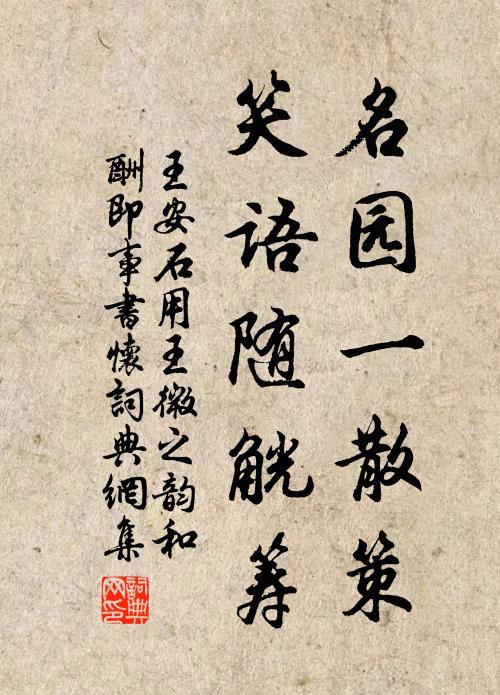 名园一散策
笑语随觥筹
王安石用王微之韵和
酬即事書懷詞典網集
詞典网印